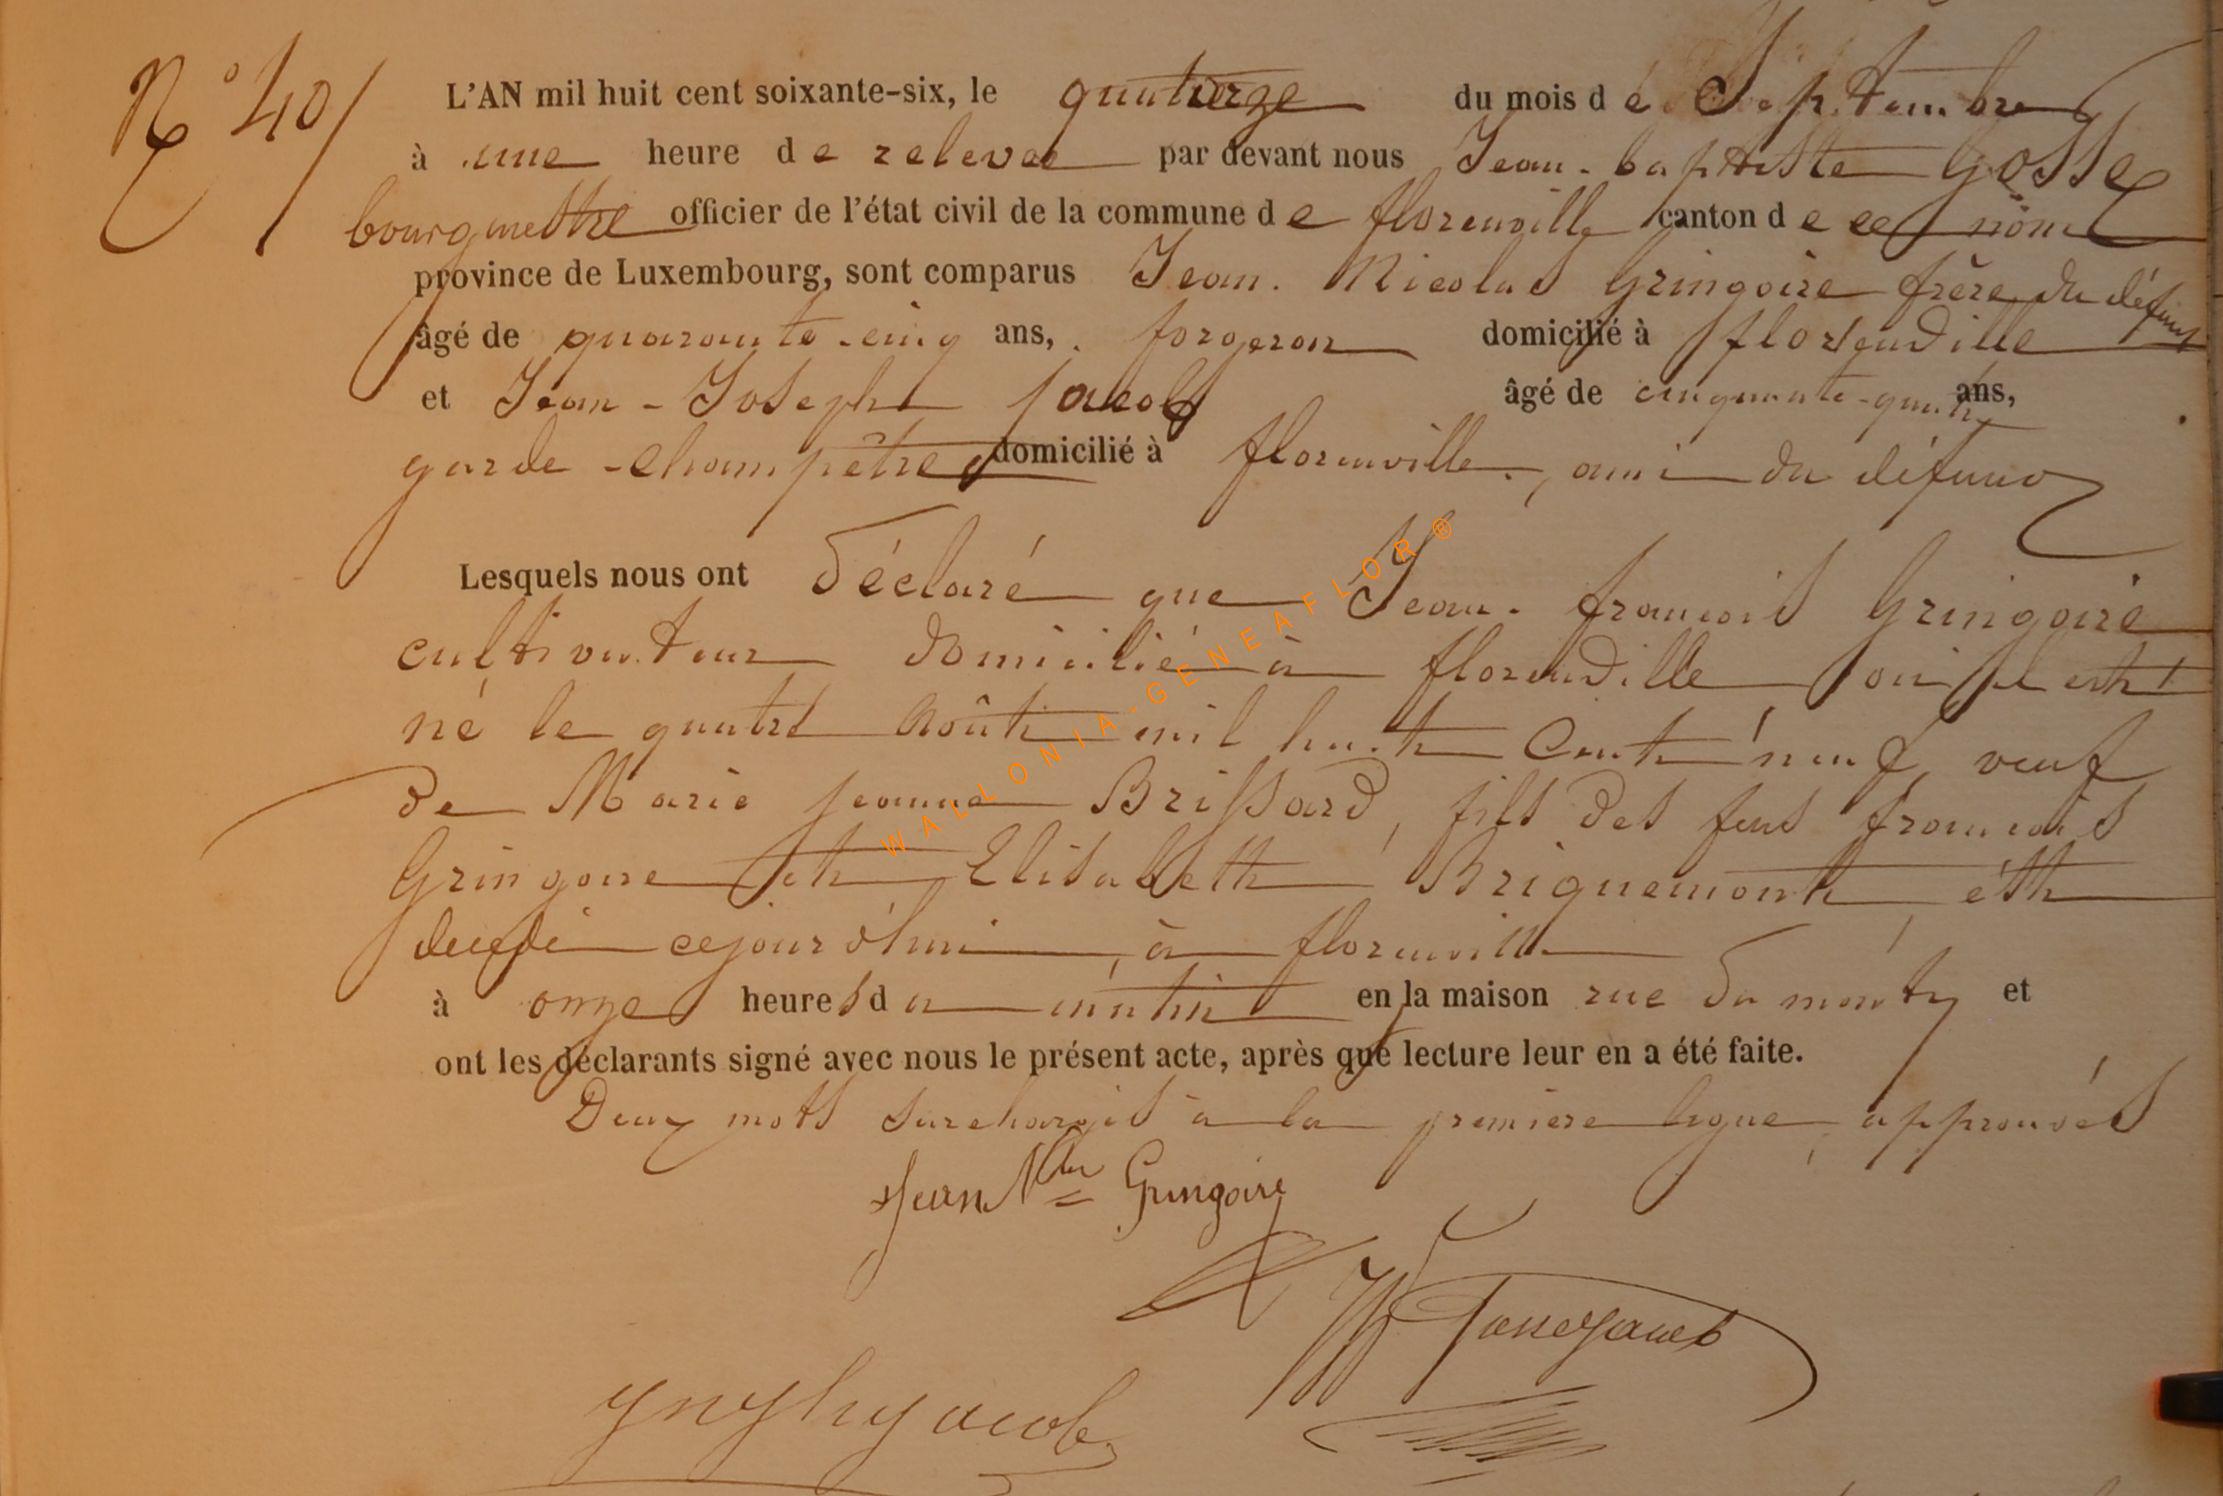 N° 40
L'AN mil huit cent soixante-six, le quatorze du mois de Septembre
à une heure de relevee par devant nous Jean-baptiste Gosse
bourgmestre officier de l'état civil de la commune de florenville canton de ce nom
province de Luxembourg, sont comparus Jean Nicolas Gringoire frère du défunt
âgé de quarante-cinq ans, forgeron domicilié à florenville
et Jean-Joseph Jacob âgé de cinquante-quatre ans,
garde-champêtre domicilié à florenville, ami du défunt
Lesquels nous ont déclaré que Jean-françois Gringoire
cultivateur domicilié à florenville où il est
né le quatre Août mil huit Cent neuf, veuf
de Marie jeanne Brissard, fils des feus françois
Gringoire et Elisabeth Briquemont, est
décédé cejourd'hui à florenville
à onze heures du matin en la maison rue du monty et
ont les déclarants signé avec nous le présent acte, après que lecture leur en a été faite.
Deux mots surchargés à la première ligne, approuvés
Jean Nlas Gringoire
Jacob
WALLONIA-GENEAFLOR®